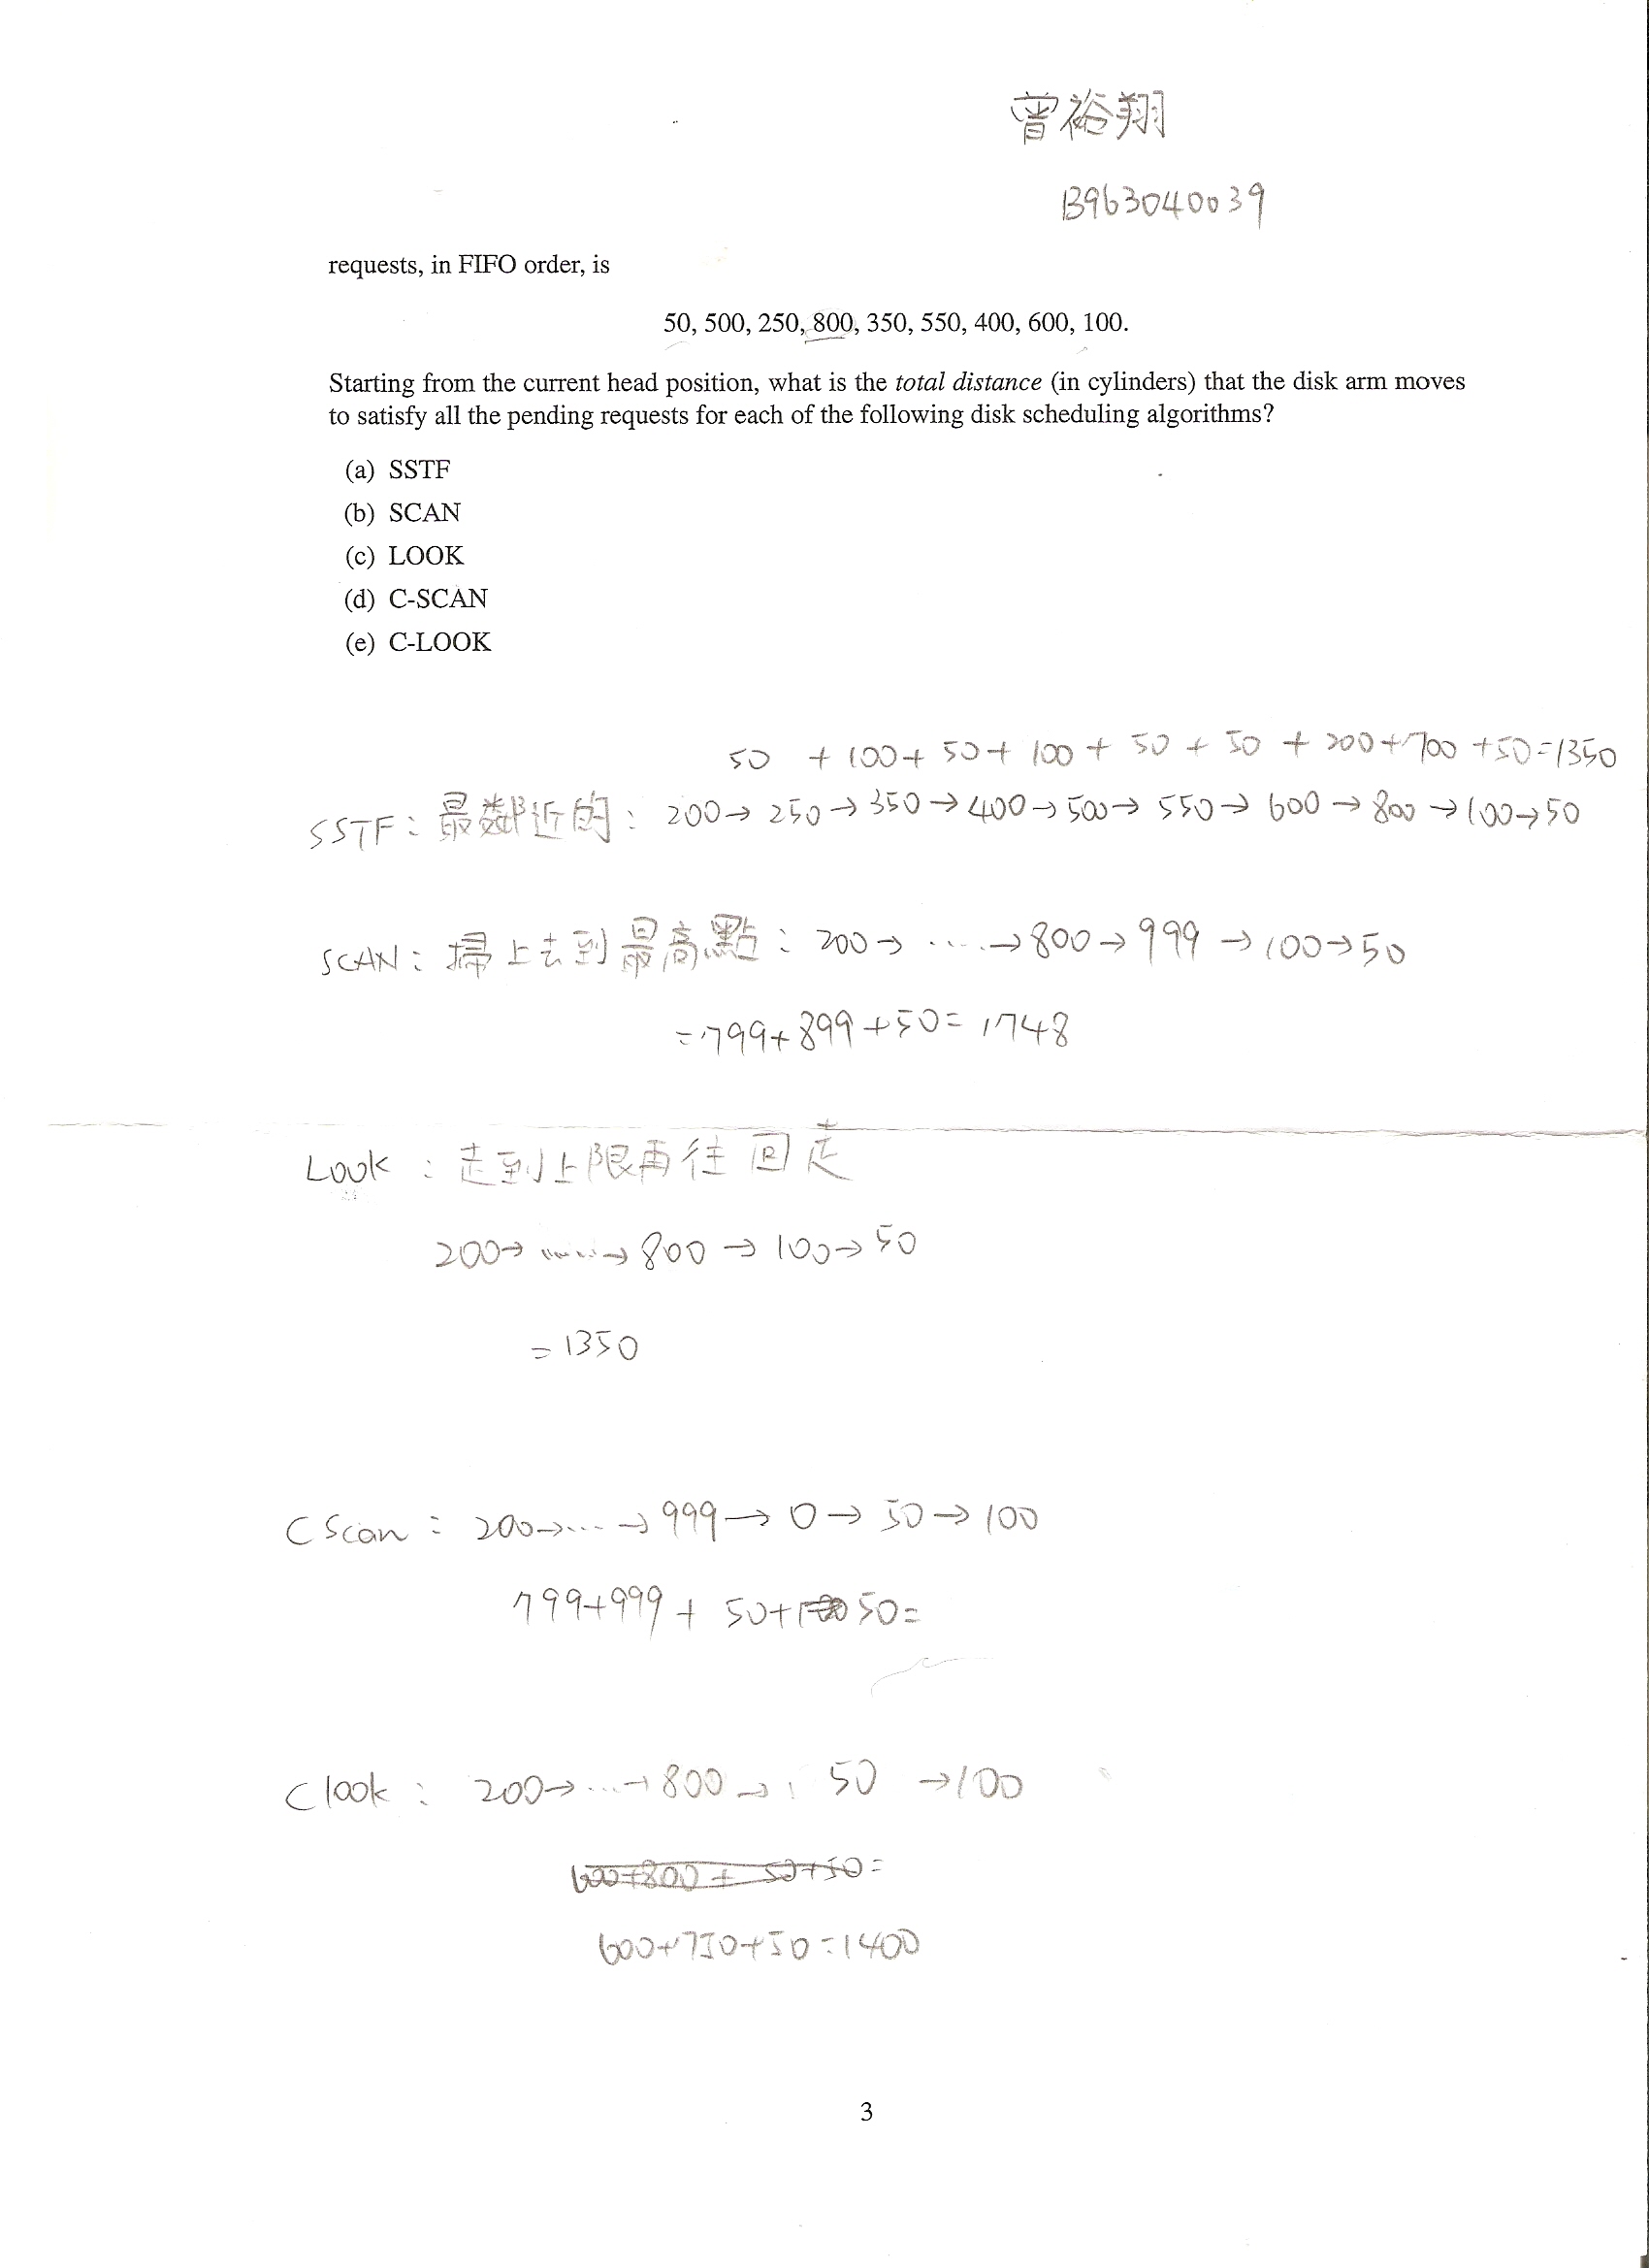 曾裕翔
B963040039
requests, in FIFO order, is
50, 500, 250, 800, 350, 550, 400, 600, 100.
Starting from the current head position, what is the total distance (in cylinders) that the disk arm moves
to satisfy all the pending requests for each of the following disk scheduling algorithms?
(a) SSTF
(b) SCAN
(c) LOOK
(d) C-SCAN
(e) C-LOOK
50 + 100 + 50 + 100 + 50 + 50 + 200 + 700 + 50 = 1350
SSTF : 最鄰近的 : 200→ 250→350→400→500→ 550→ 600→800→100→50
SCAN : 掃上去到最高點 : 200→ ‧‧‧‧→800→999→100→50
=799+899+50= 1748
Look : 走到上限再往回走
200→ ‧‧‧‧‧→800→100→50
= 1350
C Scan : 200→‧‧‧→999→ 0→ 50→100
799+999+ 50+ 50=
C look : 200→‧‧‧→800→ 50 →100
600+800+50+50=
600+750+50=1400
3